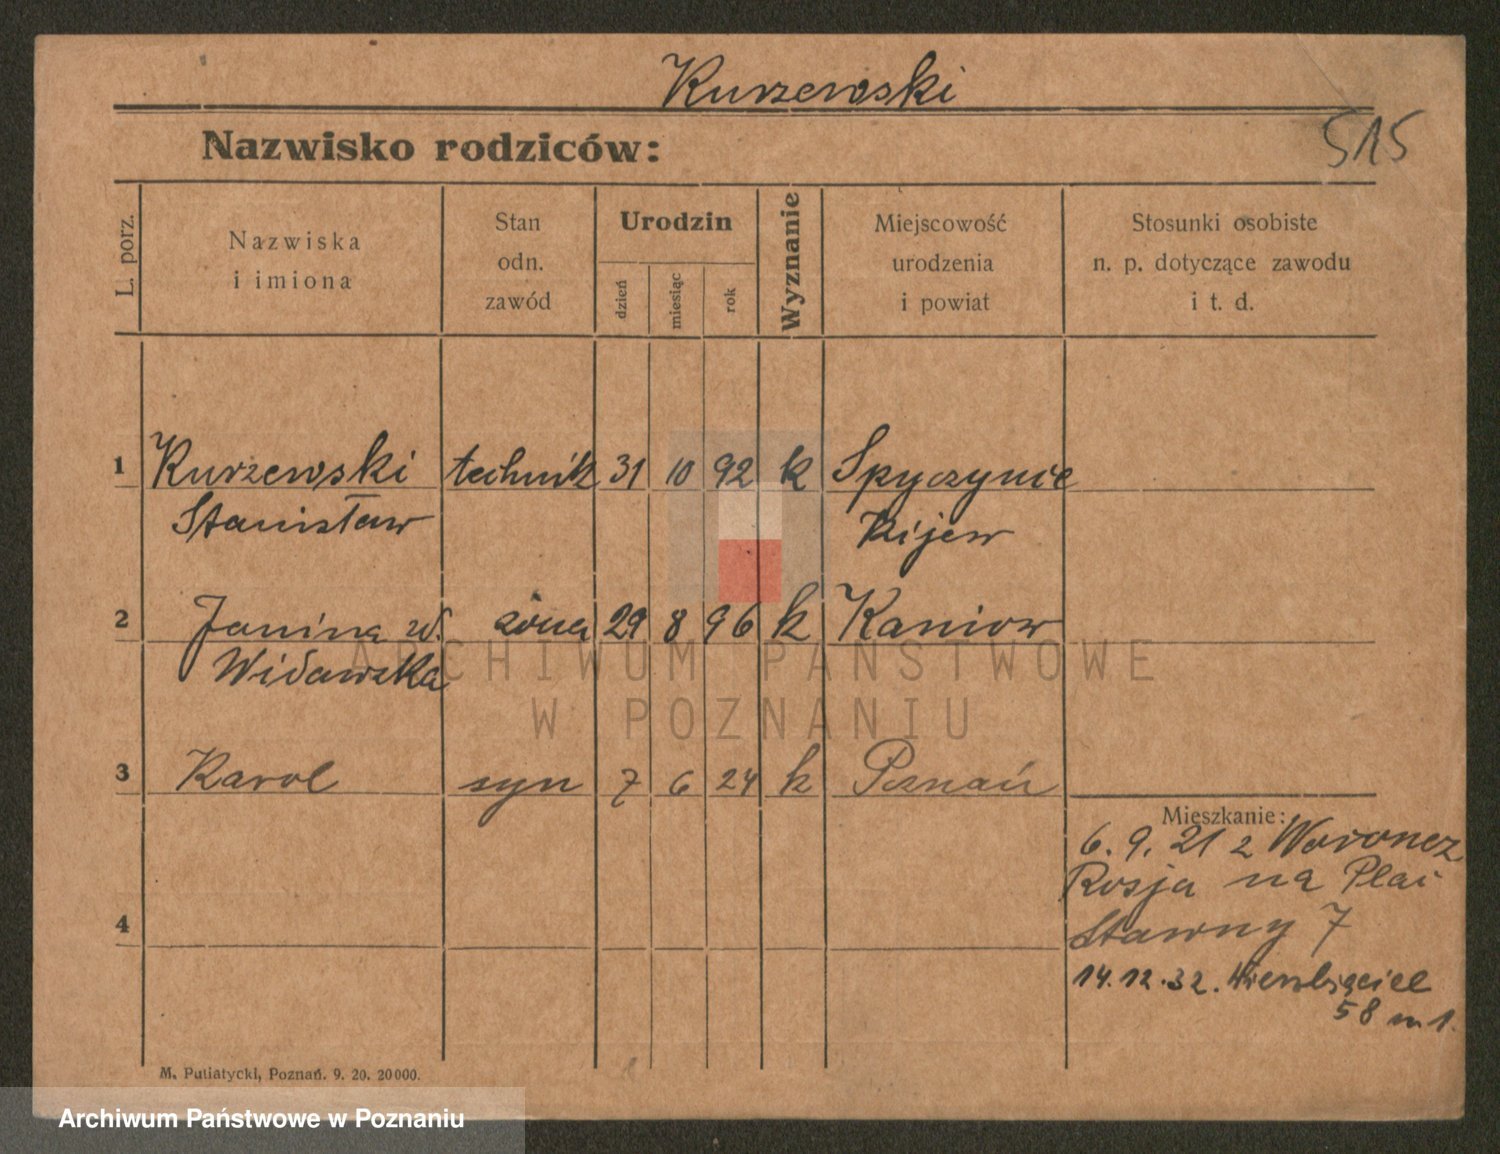 Kurzewski
515
Nazwisko rodziców:
L. porz.
Nazwiska
i imiona
Stan
odn.
zawód
Urodzin
dzień
miesiąc
rok
Wyznanie
Miejscowość
urodzenia
i powiat
Stosunki osobiste
n. p. dotyczące zawodu
i t. d.
1 Kurzewski technik 31 10 92 k Spyczynie
Stanisław Kijew
2 Janina w. żona 29 8 96 k Kaniow
Widawska
3 Karol syn 7 6 24 k Poznań
Mieszkanie:
6. 9. 21 z Woronez
Rosja na Plac
Stawny 7
4
14.12.32. Wierzbięcice
58 m 1.
M. Putiatycki, Poznań. 9. 20. 20000.
ARCHIWUM PAŃSTWOWE
W POZNANIU
Archiwum Państwowe w Poznaniu